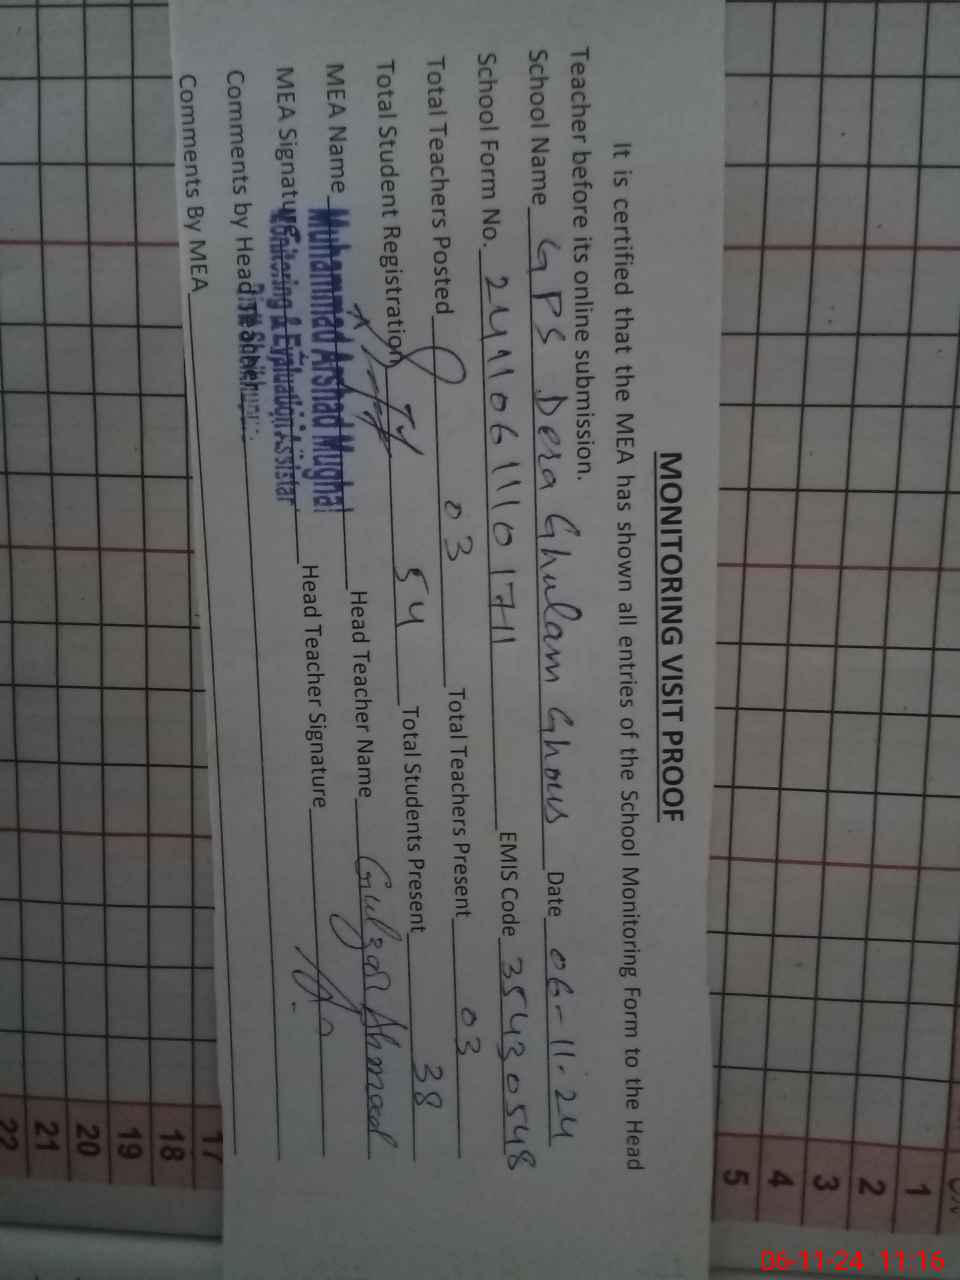 MONITORING VISIT PROOF
It is certified that the MEA has shown all entries of the School Monitoring Form to the Head
Teacher before its online submission.
School Name GPS Dera Ghulam Ghous Date 06-11-24
School Form No. 2411061110171 EMIS Code 35430548
Total Teachers Posted 03 Total Teachers Present 03
Total Student Registration 54 Total Students Present 38
MEA Name Muhammad Arshad Mughal Head Teacher Name Gulzar Ahmad
MEA Signature Monitoring & Evaluation Assistant Head Teacher Signature
Comments by Head Teacher
Comments By MEA
1
2
3
4
5
17
18
19
20
21
22
06-11-24 11:16